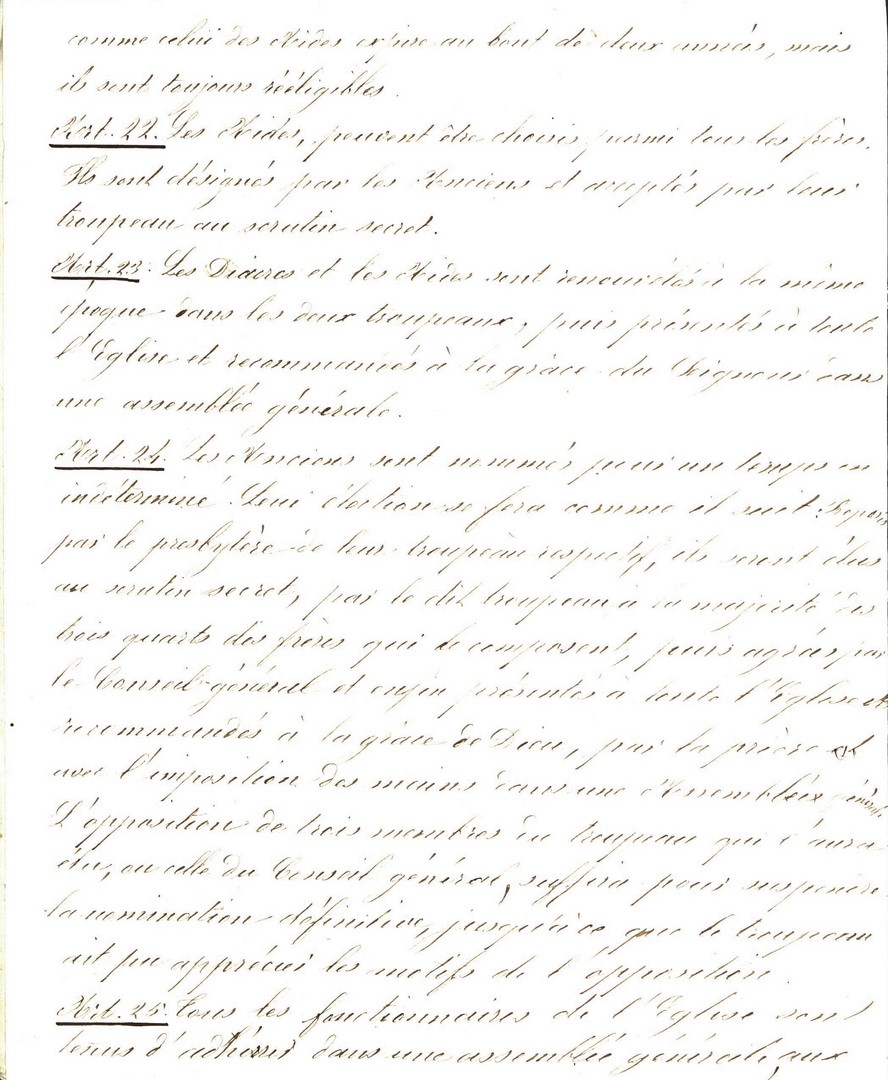 comme celui des Aides expire au bout de deux années, mais
ils sont toujours rééligibles.
Art. 22. Les Aides, peuvent être choisis parmi tous les frères.
Ils sont désignés par les Anciens et acceptés par leur
troupeau au scrutin secret.
Art. 23. Les Diacres et les Aides sont renouvelés à la même
époque dans les deux troupeaux, puis présentés à toute
l'Eglise et recommandés à la grâce du Seigneur dans
une assemblée générale.
Art. 24. Les Anciens sont nommés pour un temps
indéterminé. Leur élection se fera comme il suit:
par le presbytère de leur troupeau respectif, ils seront élus
au scrutin secret, par le dit troupeau à la majorité des
trois quarts des frères qui le composent, puis agréés par
le Conseil-général et enfin présentés à toute l'Eglise et
recommandés à la grâce de Dieu, par la prière et
avec l'imposition des mains dans une Assemblée générale
L'opposition de trois membres du troupeau qui l'aura
élu, ou celle du Conseil général, suffira pour suspendre
la nomination définitive, jusqu'à ce que le troupeau
ait pu apprécier les motifs de l'opposition.
Art. 25. Tous les fonctionnaires de l'Eglise sont
tenus d'adhérer dans une assemblée générale, aux